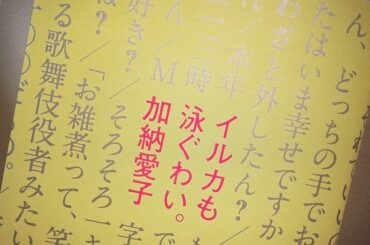 ん、どっちの手でお
たはいま幸せですか
わざと外したん？
／本年
二三時
ん／M
好き？／そろそろ一
は？／「お雑煮って、笑
る歌舞伎役者みたい
イルカも
泳ぐわい。
加納愛子